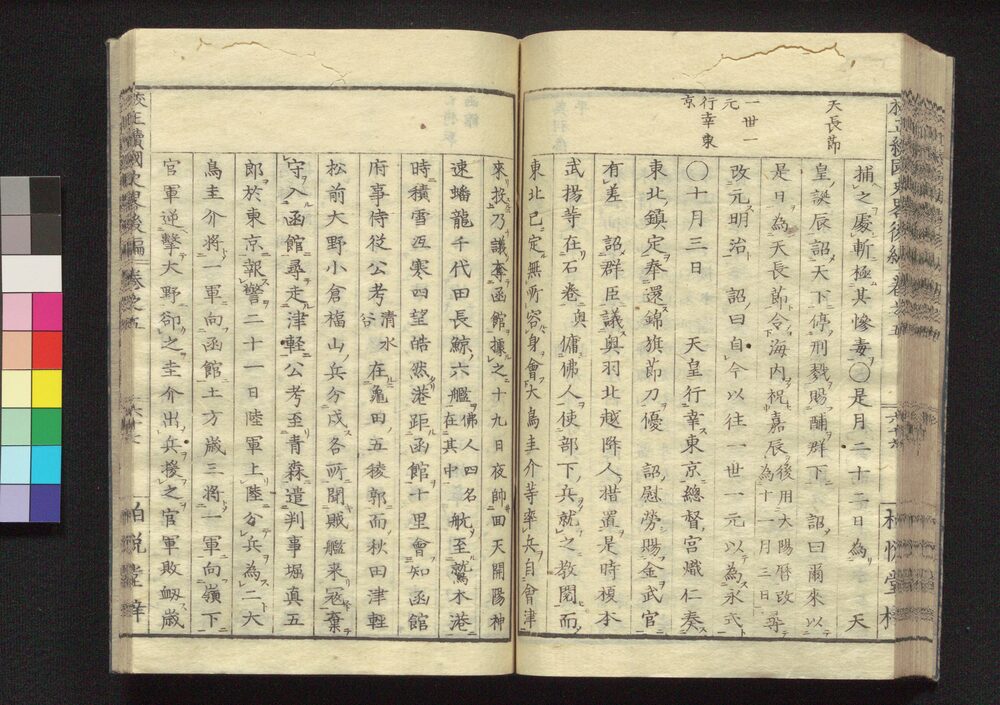 天長節
一世一
元
行幸東
京
捕之處斬極其慘毒○是月二十二日為天
皇誕辰詔天下停刑戮賜酺群下詔曰爾來以
是日為天長節令海內祝嘉辰後用大陽曆改為十一月三日尋
改元明治詔曰自今以往一世一元以為永式
○十月三日天皇行幸東京總督宮熾仁奏
東北鎮定奉還錦旗節刀優詔慰勞賜金武官
有差詔群臣議奧羽北越降人措置是時榎本
武揚等在石卷奧傭佛人使部下兵就之教閱而
東北已定無所容身會大鳥圭介等率兵自會津
來投乃議奪函館據之十九日夜帥回天開陽神
速蟠龍千代田長鯨六艦佛人四名在其中航至鷲木港
時積雪沍寒四望皓然港距函館十里會知函館
府事侍從公考清水谷在龜田五稜郭而秋田津輕
松前大野小倉福山兵分戍各所聞賊艦來寇棄
守入函館尋走津輕公考至青森遣判事堀真五
郎於東京報警二十一日陸軍上陸分兵為二大
鳥圭介將一軍向函館土方歲三將一軍向嶺下
官軍逆擊大野卻之圭介出兵援之官軍敗衄歲
校正續國史畧後編卷之五
六十六
柏悅堂梓